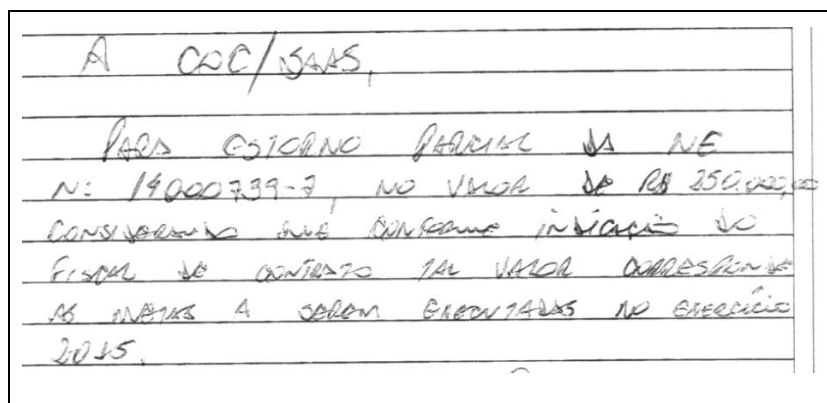 A COC/SAAS,
PARA ESTORNO PARCIAL DA NE
Nº 14000739-7, NO VALOR DE R$ 250.000,00
CONSIDERANDO QUE CONFORME INDICAÇÃO DO
FISCAL DE CONTRATO TAL VALOR CORRESPONDE
AS METAS A SEREM EXECUTADAS NO EXERCÍCIO
2015.